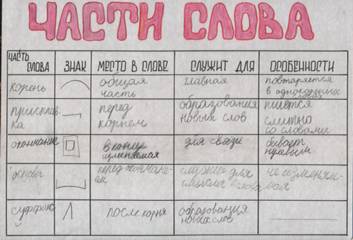 ЧАСТИ СЛОВА
ЧАСТЬ СЛОВА
ЗНАК
МЕСТО В СЛОВЕ
СЛУЖИТ ДЛЯ
ОСОБЕННОСТИ
корень
общая
часть
главная
повторяется
в однокоренных
приставка
перед
корнем
образования
новых слов
пишется
слитно
со словами
окончание
в конце
изменяемая
для связи
бывает
основа
перед
служит для
не изменяемая
суффикс
после корня
образования
новых слов